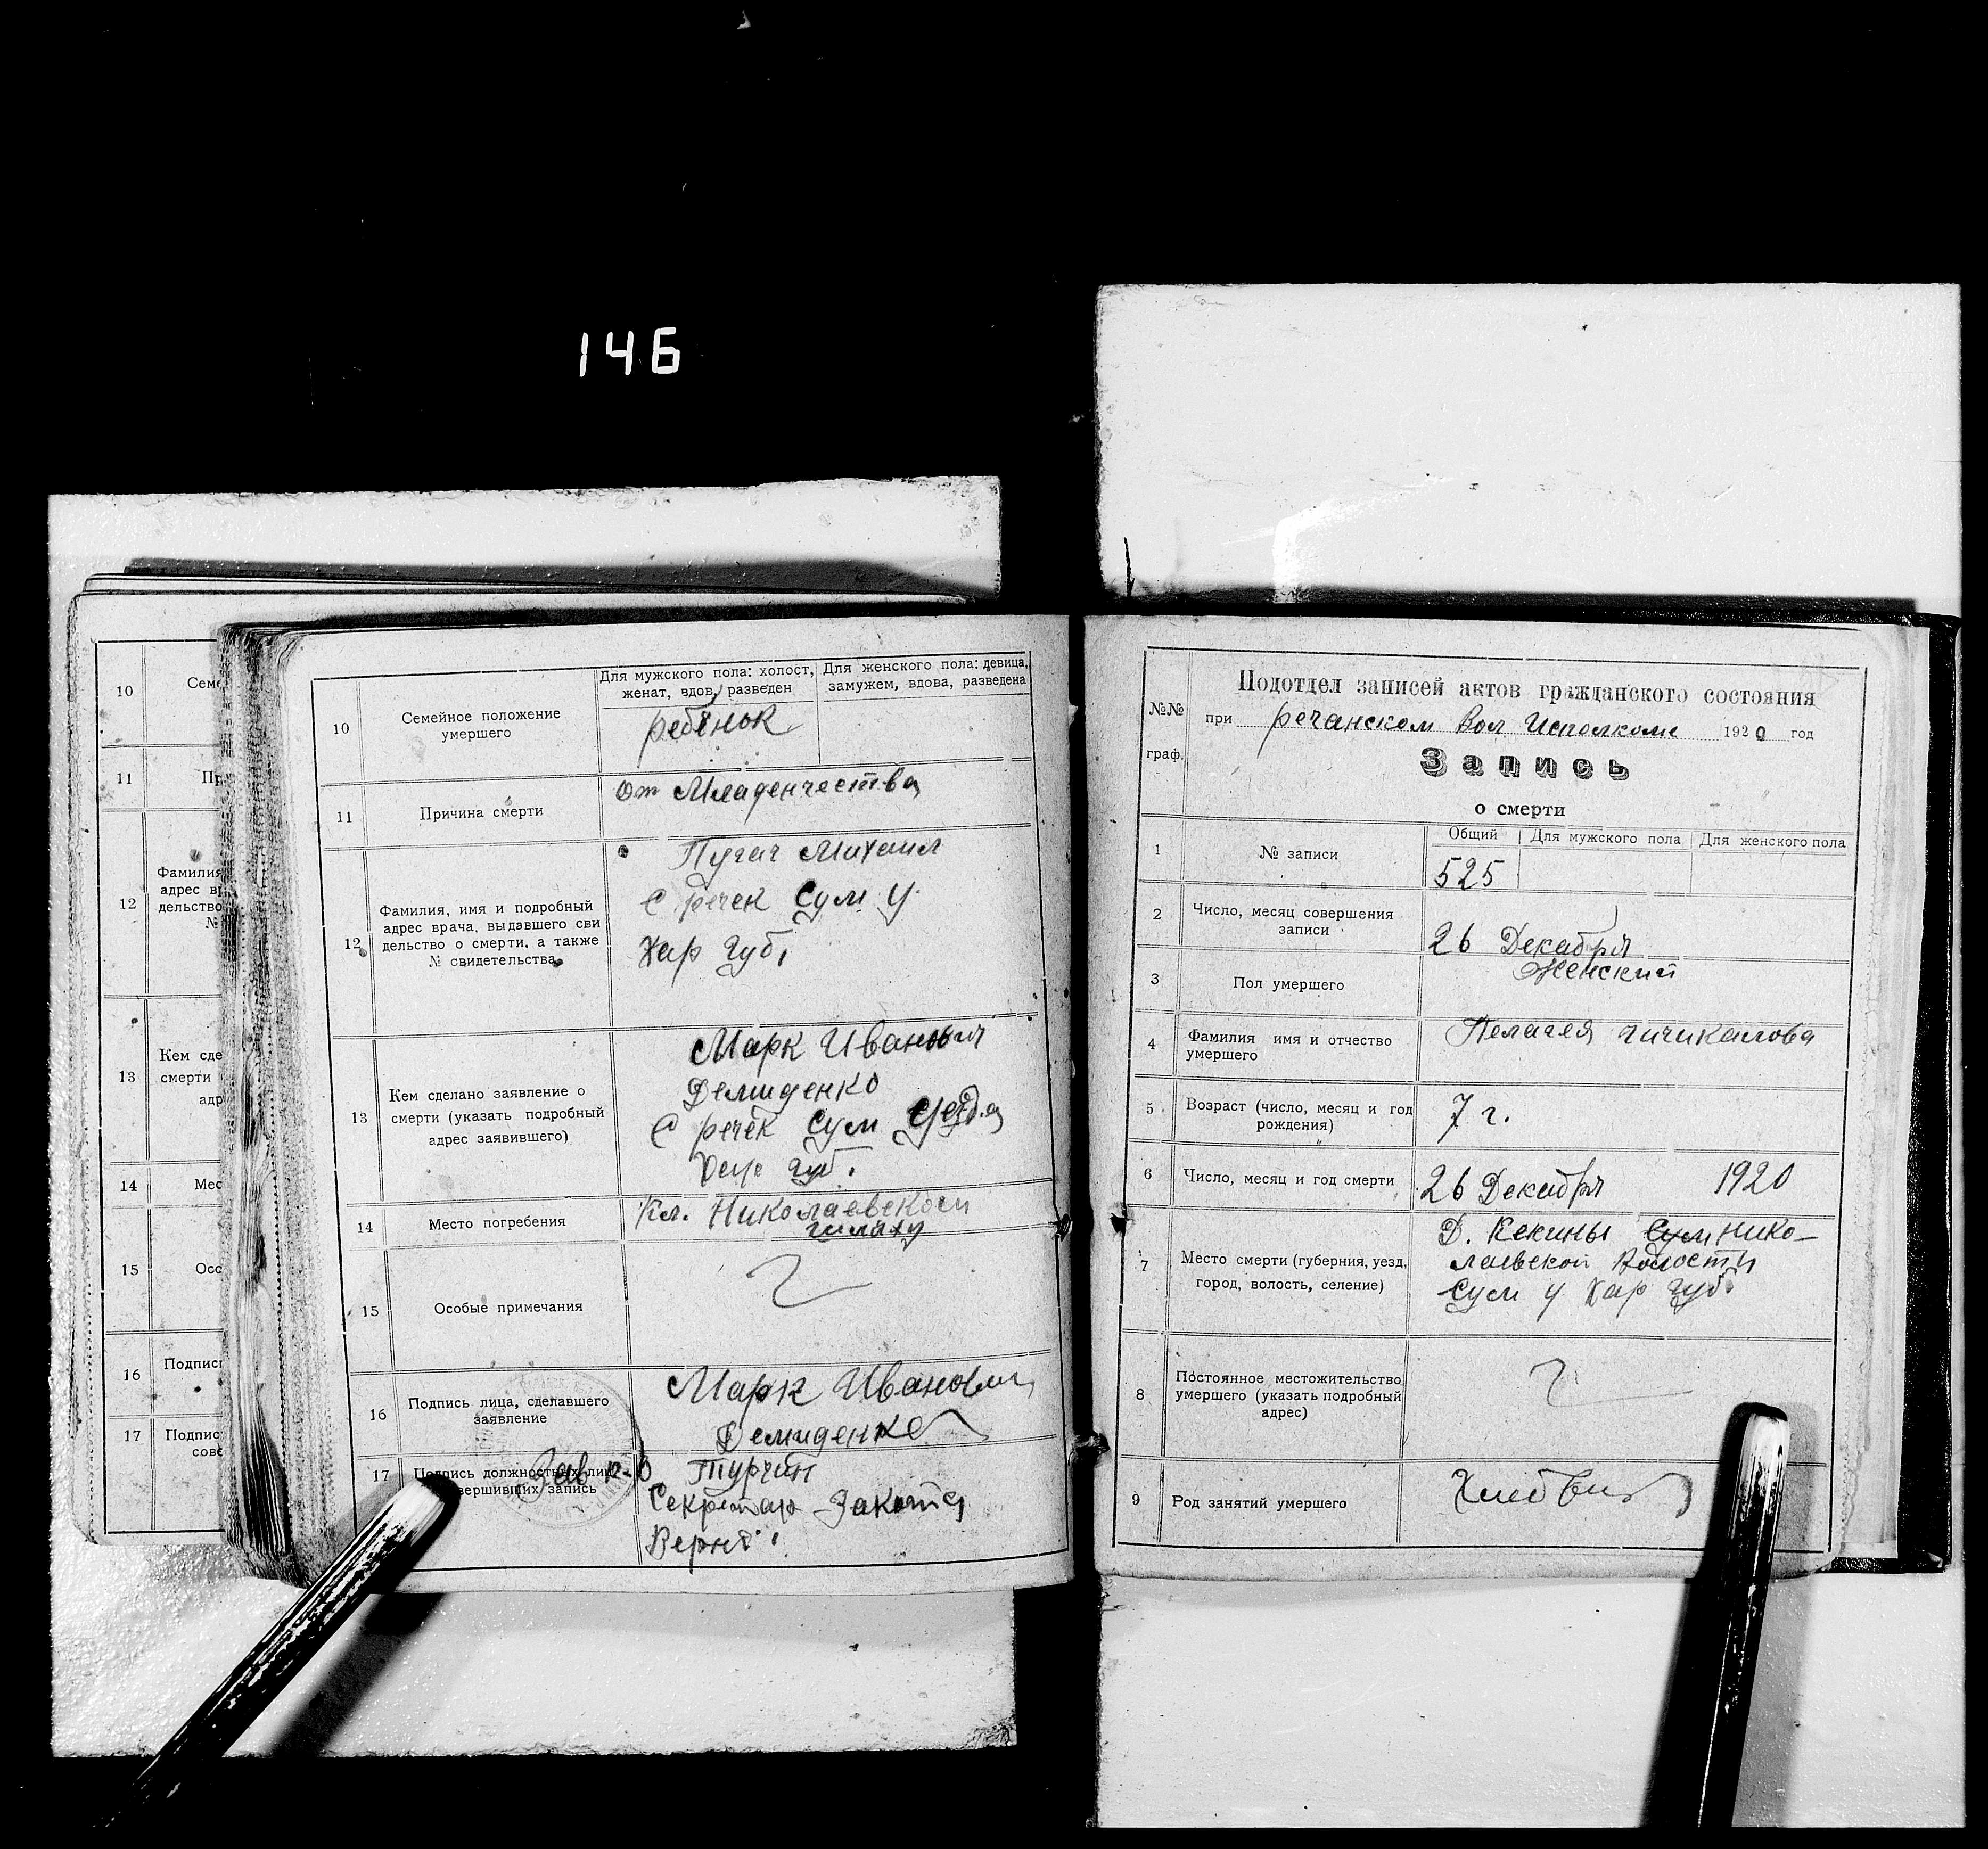 146
10
Семе
11
Пр
12
Фамилия
адрес вр
дельство
№
13
Кем сде
смерти
адр
14
Мес
15
Осо
16
Подпис
17
Подпис
сове
10
Семейное положение
умершего
Для мужского пола: холост,
женат, вдов, разведен
Для женского пола: девица,
замужем, вдова, разведена
ребёнок
11
Причина смерти
от Младенчества
12
Фамилия, имя и подробный
адрес врача, выдавшего сви
дельство о смерти, а также
№ свидетельства
Пугач Михаил
с речек Сум у
Хар губ.
13
Кем сделано заявление о
смерти (указать подробный
адрес заявившего)
Марк Иванович
Демиденко
С речек Сум уезда
Хар губ.
14
Место погребения
Кл. Николаевской
15
Особые примечания
16
Подпись лица, сделавшего
заявление
Марк Иванович
Демиденко
17
Подпись должностных лиц
совершивших запись
Зав п-о
Секретарь
Верно:
№№
граф.
Подотдел записей актов гражданского состояния
при речанском Вол Исполкоме 1920 год
Запись
о смерти
1
№ записи
Общий
Для мужского пола
Для женского пола
525
2
Число, месяц совершения
записи
26 Декабря
3
Пол умершего
Женский
4
Фамилия имя и отчество
умершего
Пелагея чичикалова
5
Возраст (число, месяц и год
рождения)
7 г.
6
Число, месяц и год смерти
26 Декабря 1920
7
Место смерти (губерния, уезд,
город, волость, селение)
Д. Кекины Сум Нико-
лаевской волости
Сум у Хар губ.
8
Постоянное местожительство
умершего (указать подробный
адрес)
9
Род занятий умершего